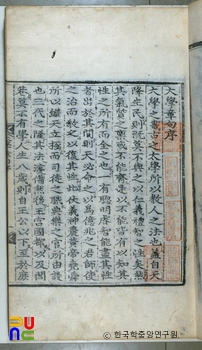 大學章句序
大學之書古之太學所以敎人之法也蓋自天
降生民則旣莫不與之以仁義禮智之性矣然
其氣質之稟或不能齊是以不能皆有以知其
性之所有而全之也一有聰明睿智能盡其性
者出於其間則天必命之以爲億兆之君師使
之治而敎之以復其性此伏羲神農黃帝堯舜
所以繼天立極而司徒之職典樂之官所由設
也三代之隆其法寖備然後王宮國都以及閭
巷莫不有學人生八歲則自王公以下至於庶
ⓒ 한국학중앙연구원